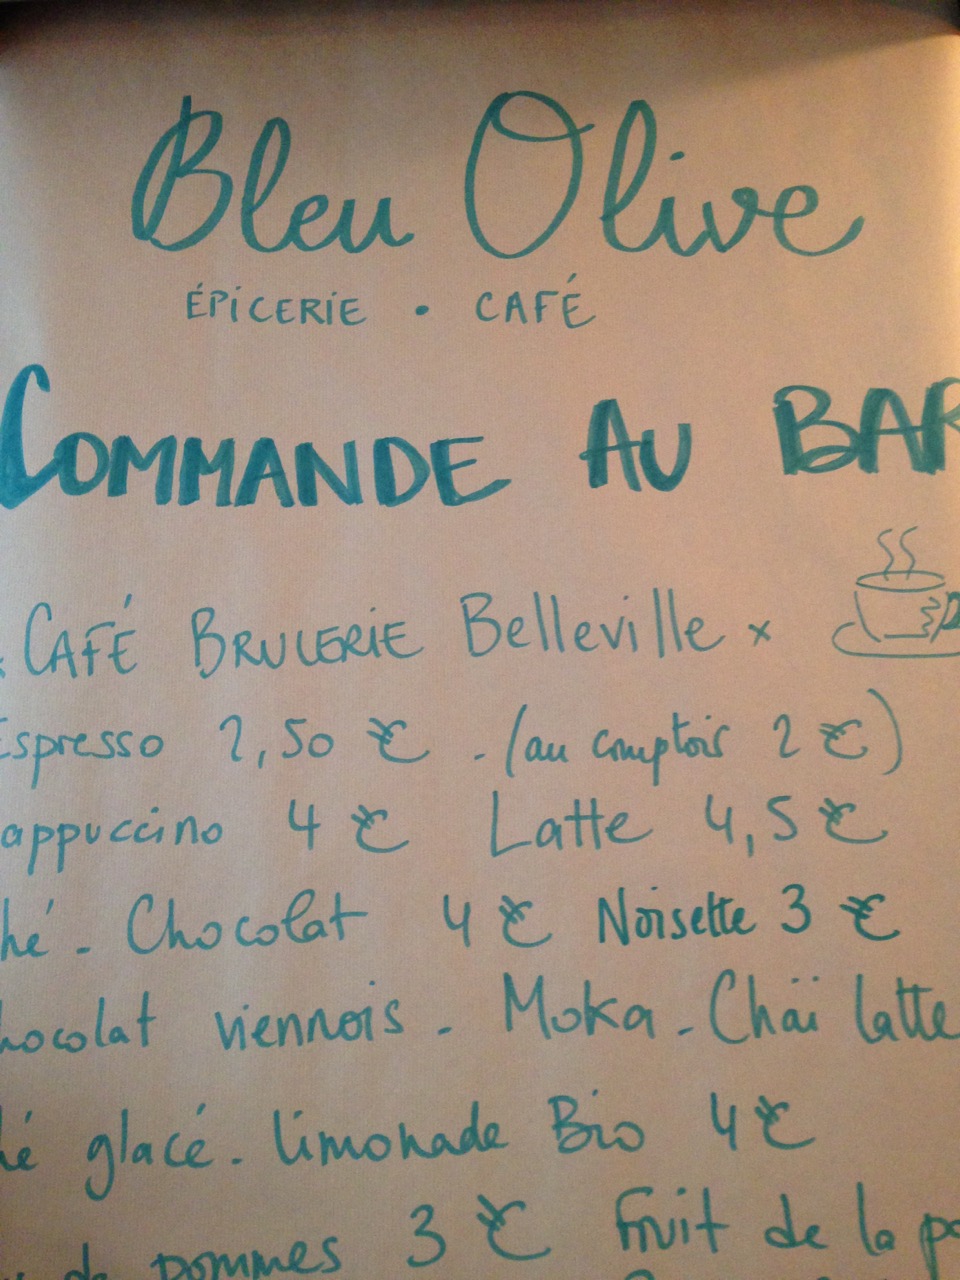 Bleu Olive
ÉPICERIE • CAFÉ
COMMANDE AU BAR
x CAFÉ BRULERIE Belleville x
Espresso 2,50 € . (au comptoir 2 €)
appuccino 4 € Latte 4,5 €
hé . Chocolat 4 € Noisette 3 €
hocolat viennois . Moka . Chaï latte
hé glacé . limonade Bio 4 €
de pommes 3 € Fruit de la pa